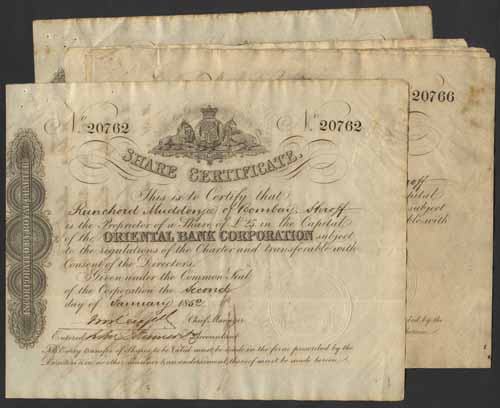 No. 20762
No. 20762
SHARE CERTIFICATE.
This is to Certify that
Runchord Muddonjee of Bombay Shroff
is the Proprietor of a Share of £25 in the Capital
of the ORIENTAL BANK CORPORATION subject
to the regulations of the Charter and transferable with
Consent of the Directors.
Given under the Common Seal
of the Corporation the Second
day of January 1852
Chief Manager
Entered
Accountant
Every transfer of Shares to be Valid must be made in the form prescribed by the
Directors in no other manner is an endorsement thereof must be made hereon.
INCORPORATED BY ROYAL CHARTER
20766
roff
apital
subject
ble with
ibed by the
hereon.